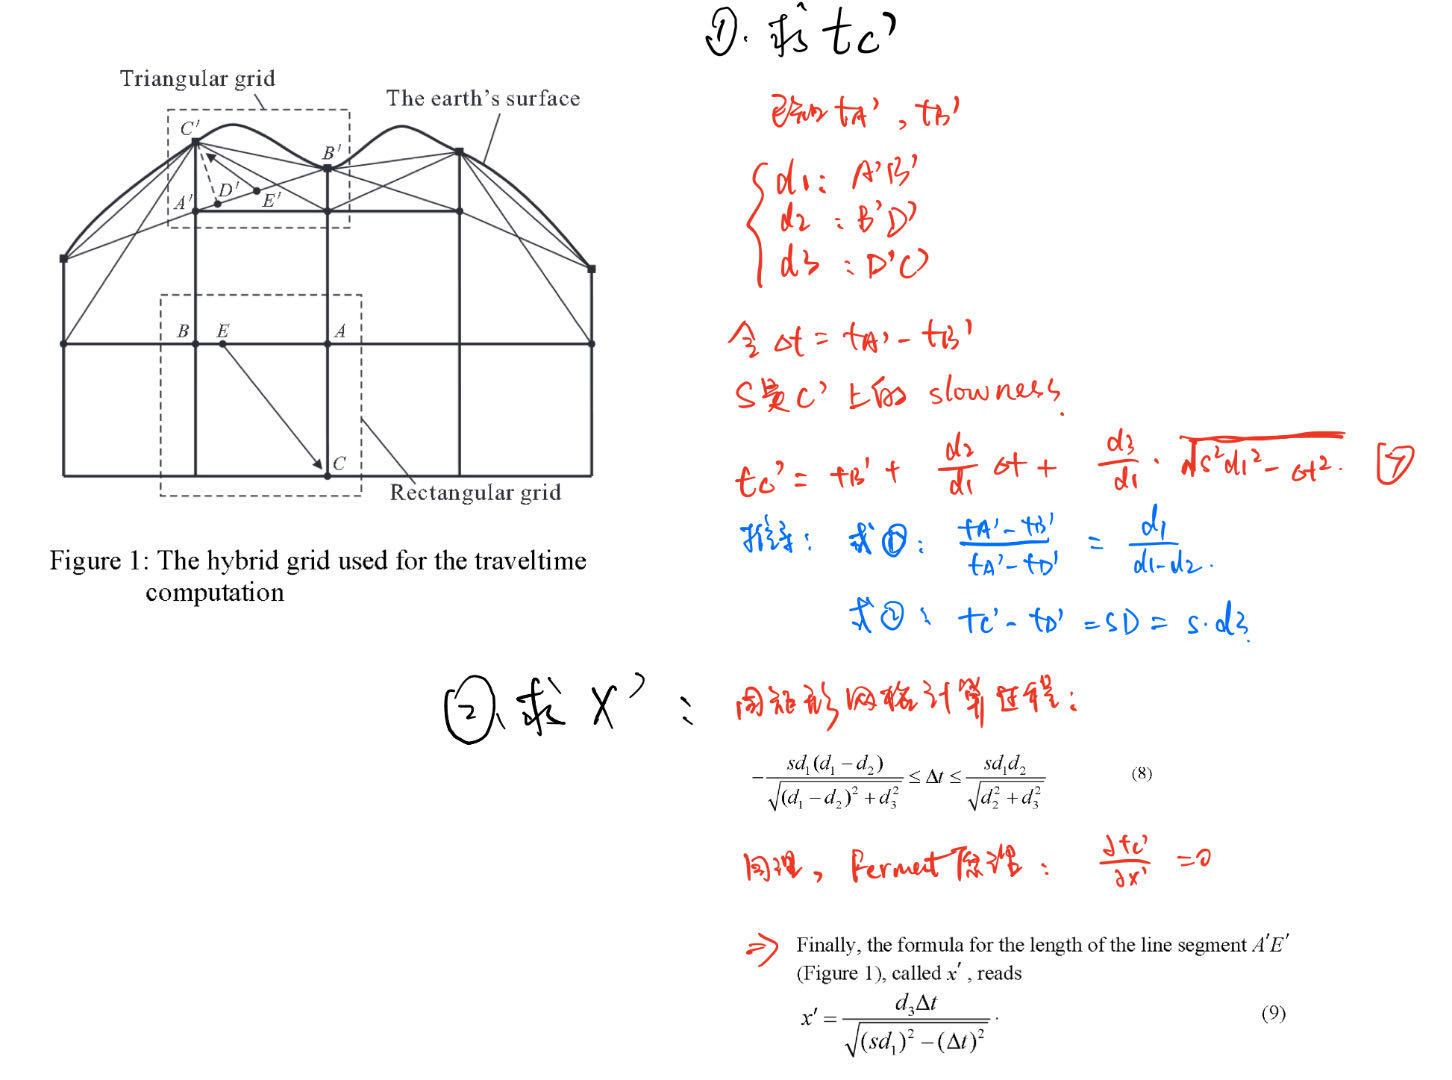 ①. 求 tc'
Triangular grid
The earth's surface
C'
B'
A'
D'
E'
B
E
A
C
Rectangular grid
Figure 1: The hybrid grid used for the traveltime
computation
已知 tA' , tB'
d1: A'B'
d2 : B'D'
d3 : D'C'
令 Δt = tA' - tB'
S是C'上的 slowness.
tc' = tB' + d2/d1 Δt + d3/d1 · √(s²d1² - Δt²). (7)
推导: 求①: (tA' - tB')/(tA' - tD') = d1/(d1-d2).
求②: tc' - tD' = SD = s·d3.
②、求 X' :
同矩形网格计算过程:
- sd₁(d₁ - d₂)/√((d₁ - d₂)² + d₃²) ≤ Δt ≤ sd₁d₂/√(d₂² + d₃²) (8)
同理, Fermat原理: ∂tc'/∂x' = 0
⇒ Finally, the formula for the length of the line segment A'E'
(Figure 1), called x' , reads
x' = d₃Δt/√((sd₁)² - (Δt)²) . (9)